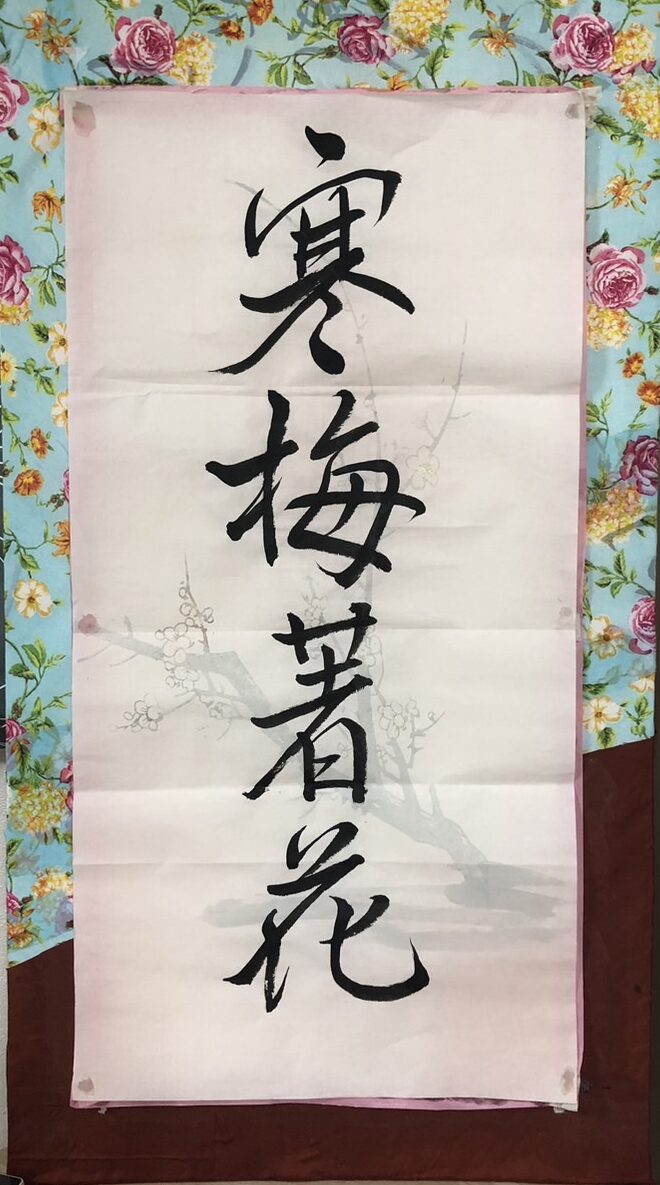 寒梅著花